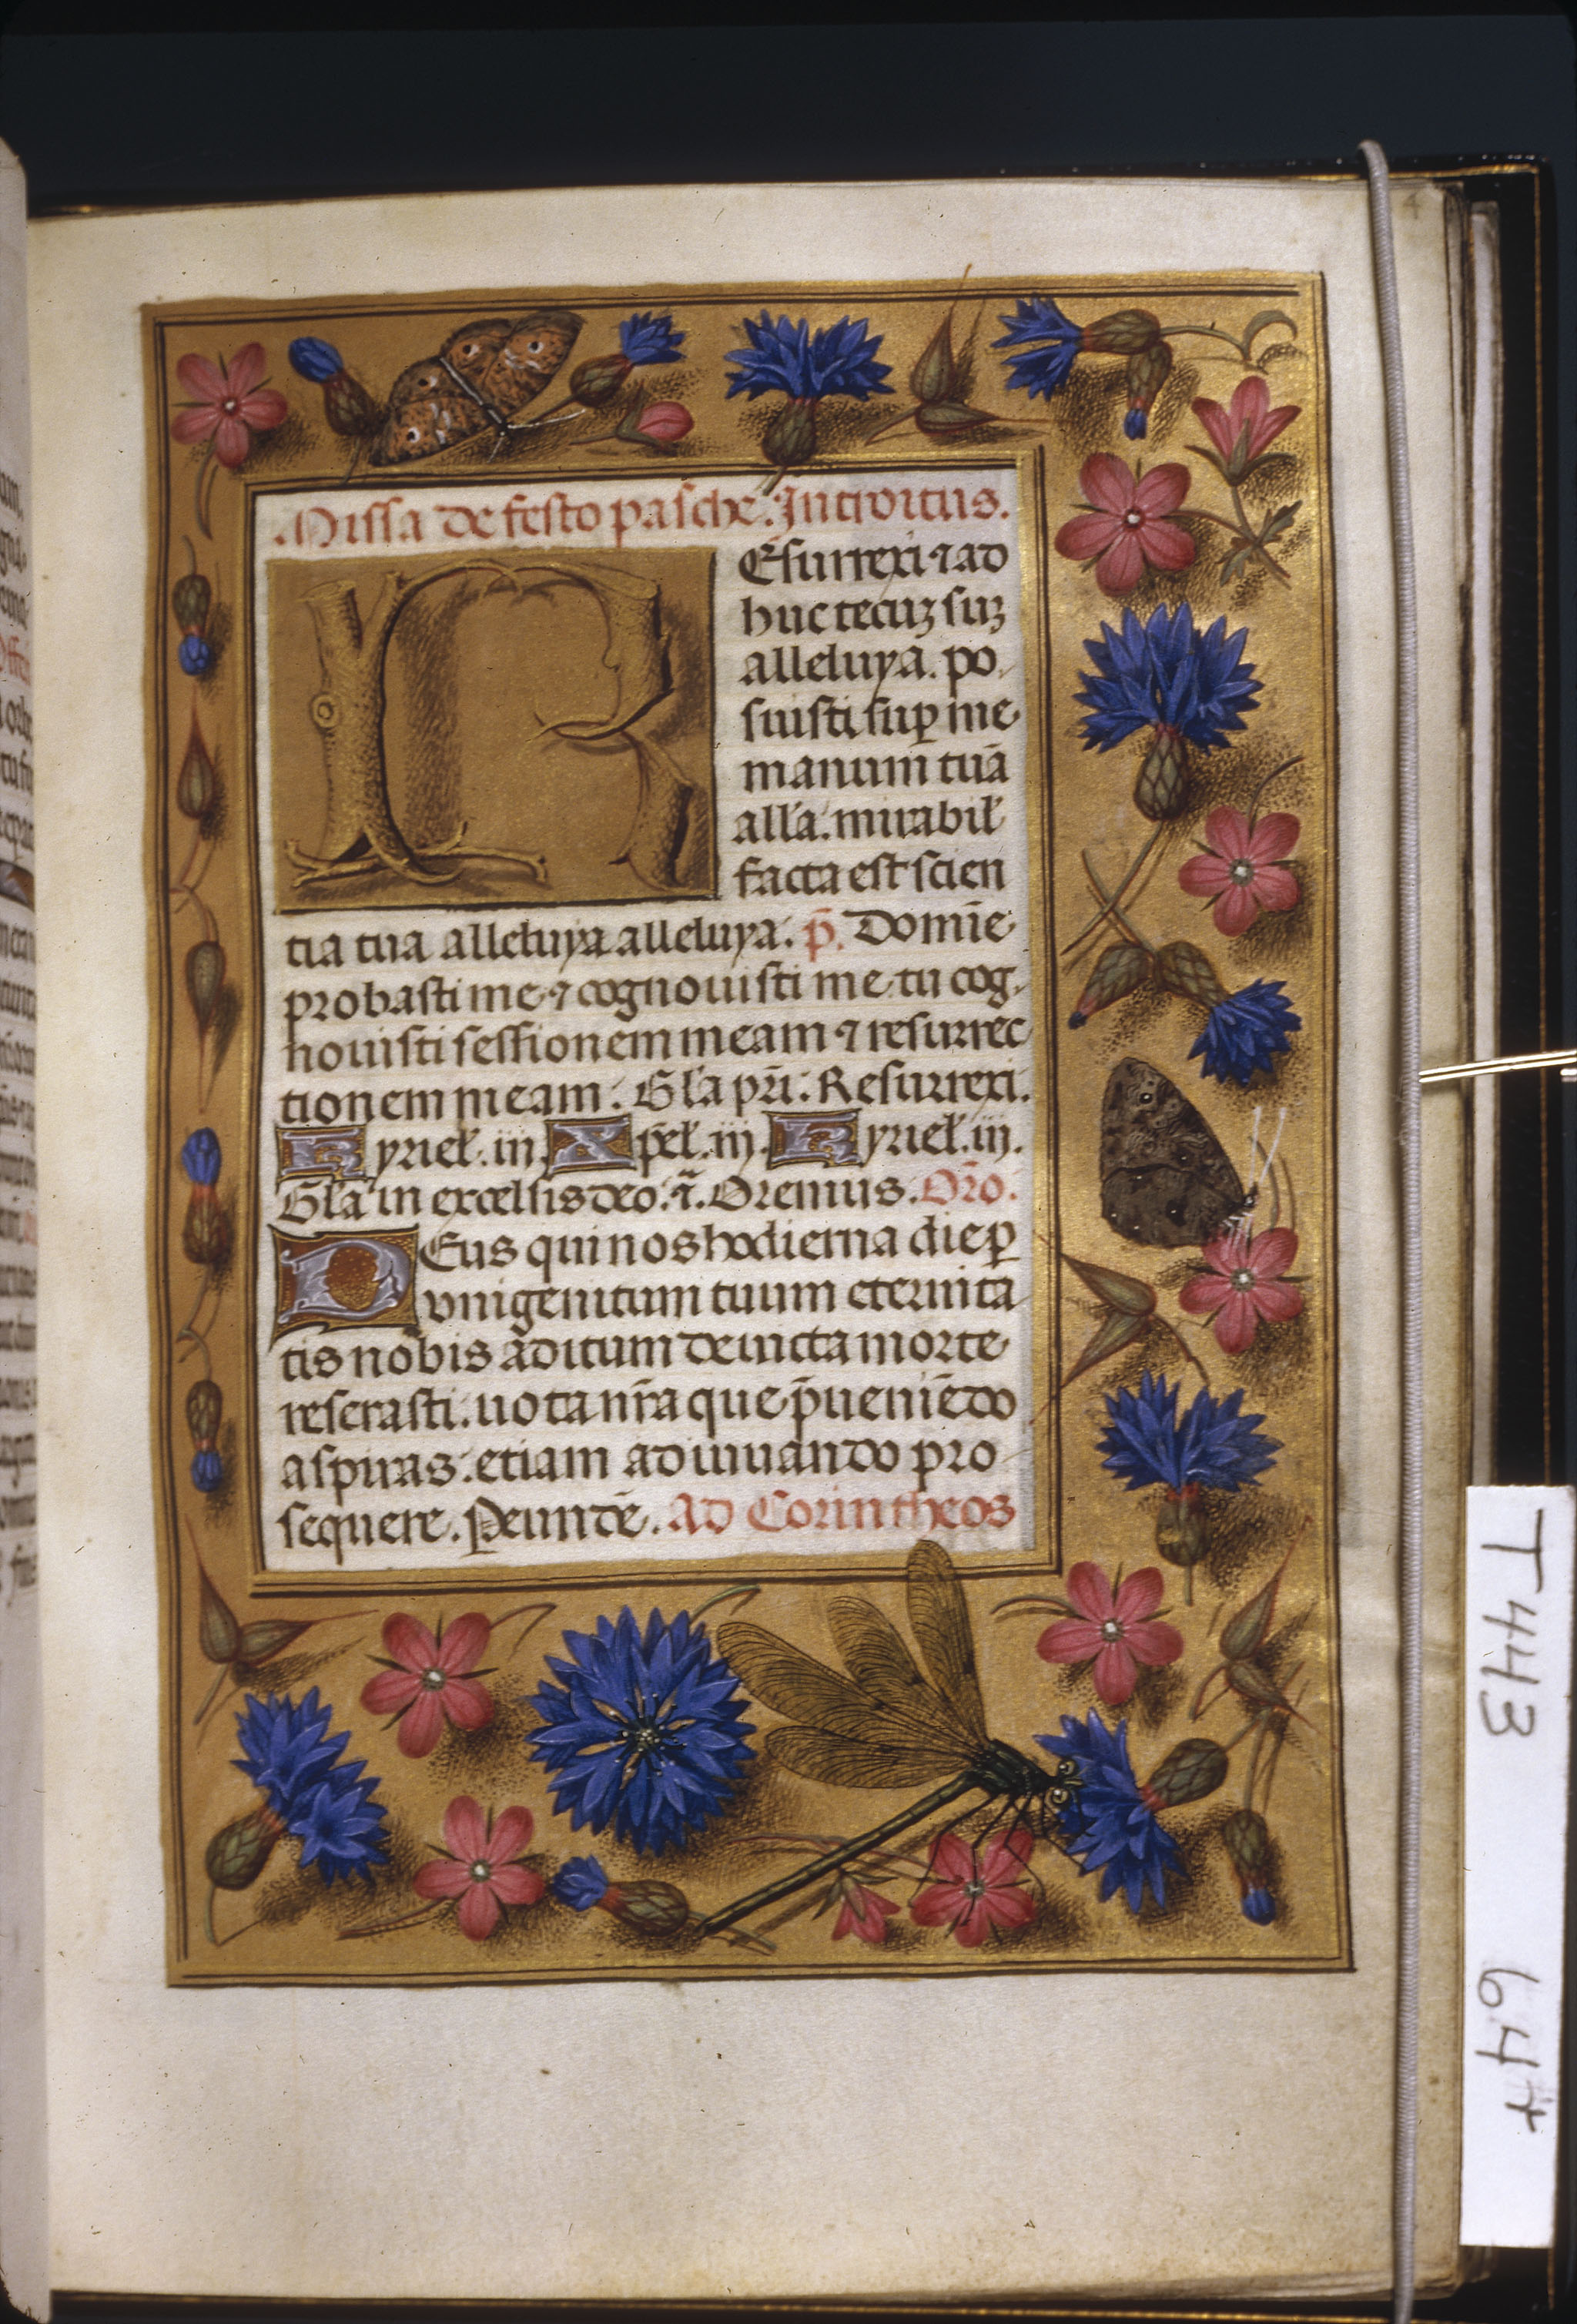 Missa de festo pasche. Introitus.
Esurrexi ⁊ ad
huc tecuꝫ suꝫ
alleluya. po
suisti sup̱ me
manum tuā
alla. mirabil
facta est scien
tia tua alleluya alleluya. p̄. Domīe
probasti me ⁊ cognouisti me tu cog
nouisti sessionem meam ⁊ resurrec
tionem meam. Gla pr̄i. Resurrexi.
Kyriel. iij. Xp̄el. iij. Kyriel. iij.
Gla in excelsis deo. ⁊. Oremus. Or̄o.
DEus qui nos hodierna die p̱
vnigenitum tuum eternita
tis nobis aditum deuicta morte
reserasti. uota nr̄a que p̄ueniēdo
aspiras. etiam adiuuando pro
sequere. P̱eundē. Ad Corintheos
T443
64r